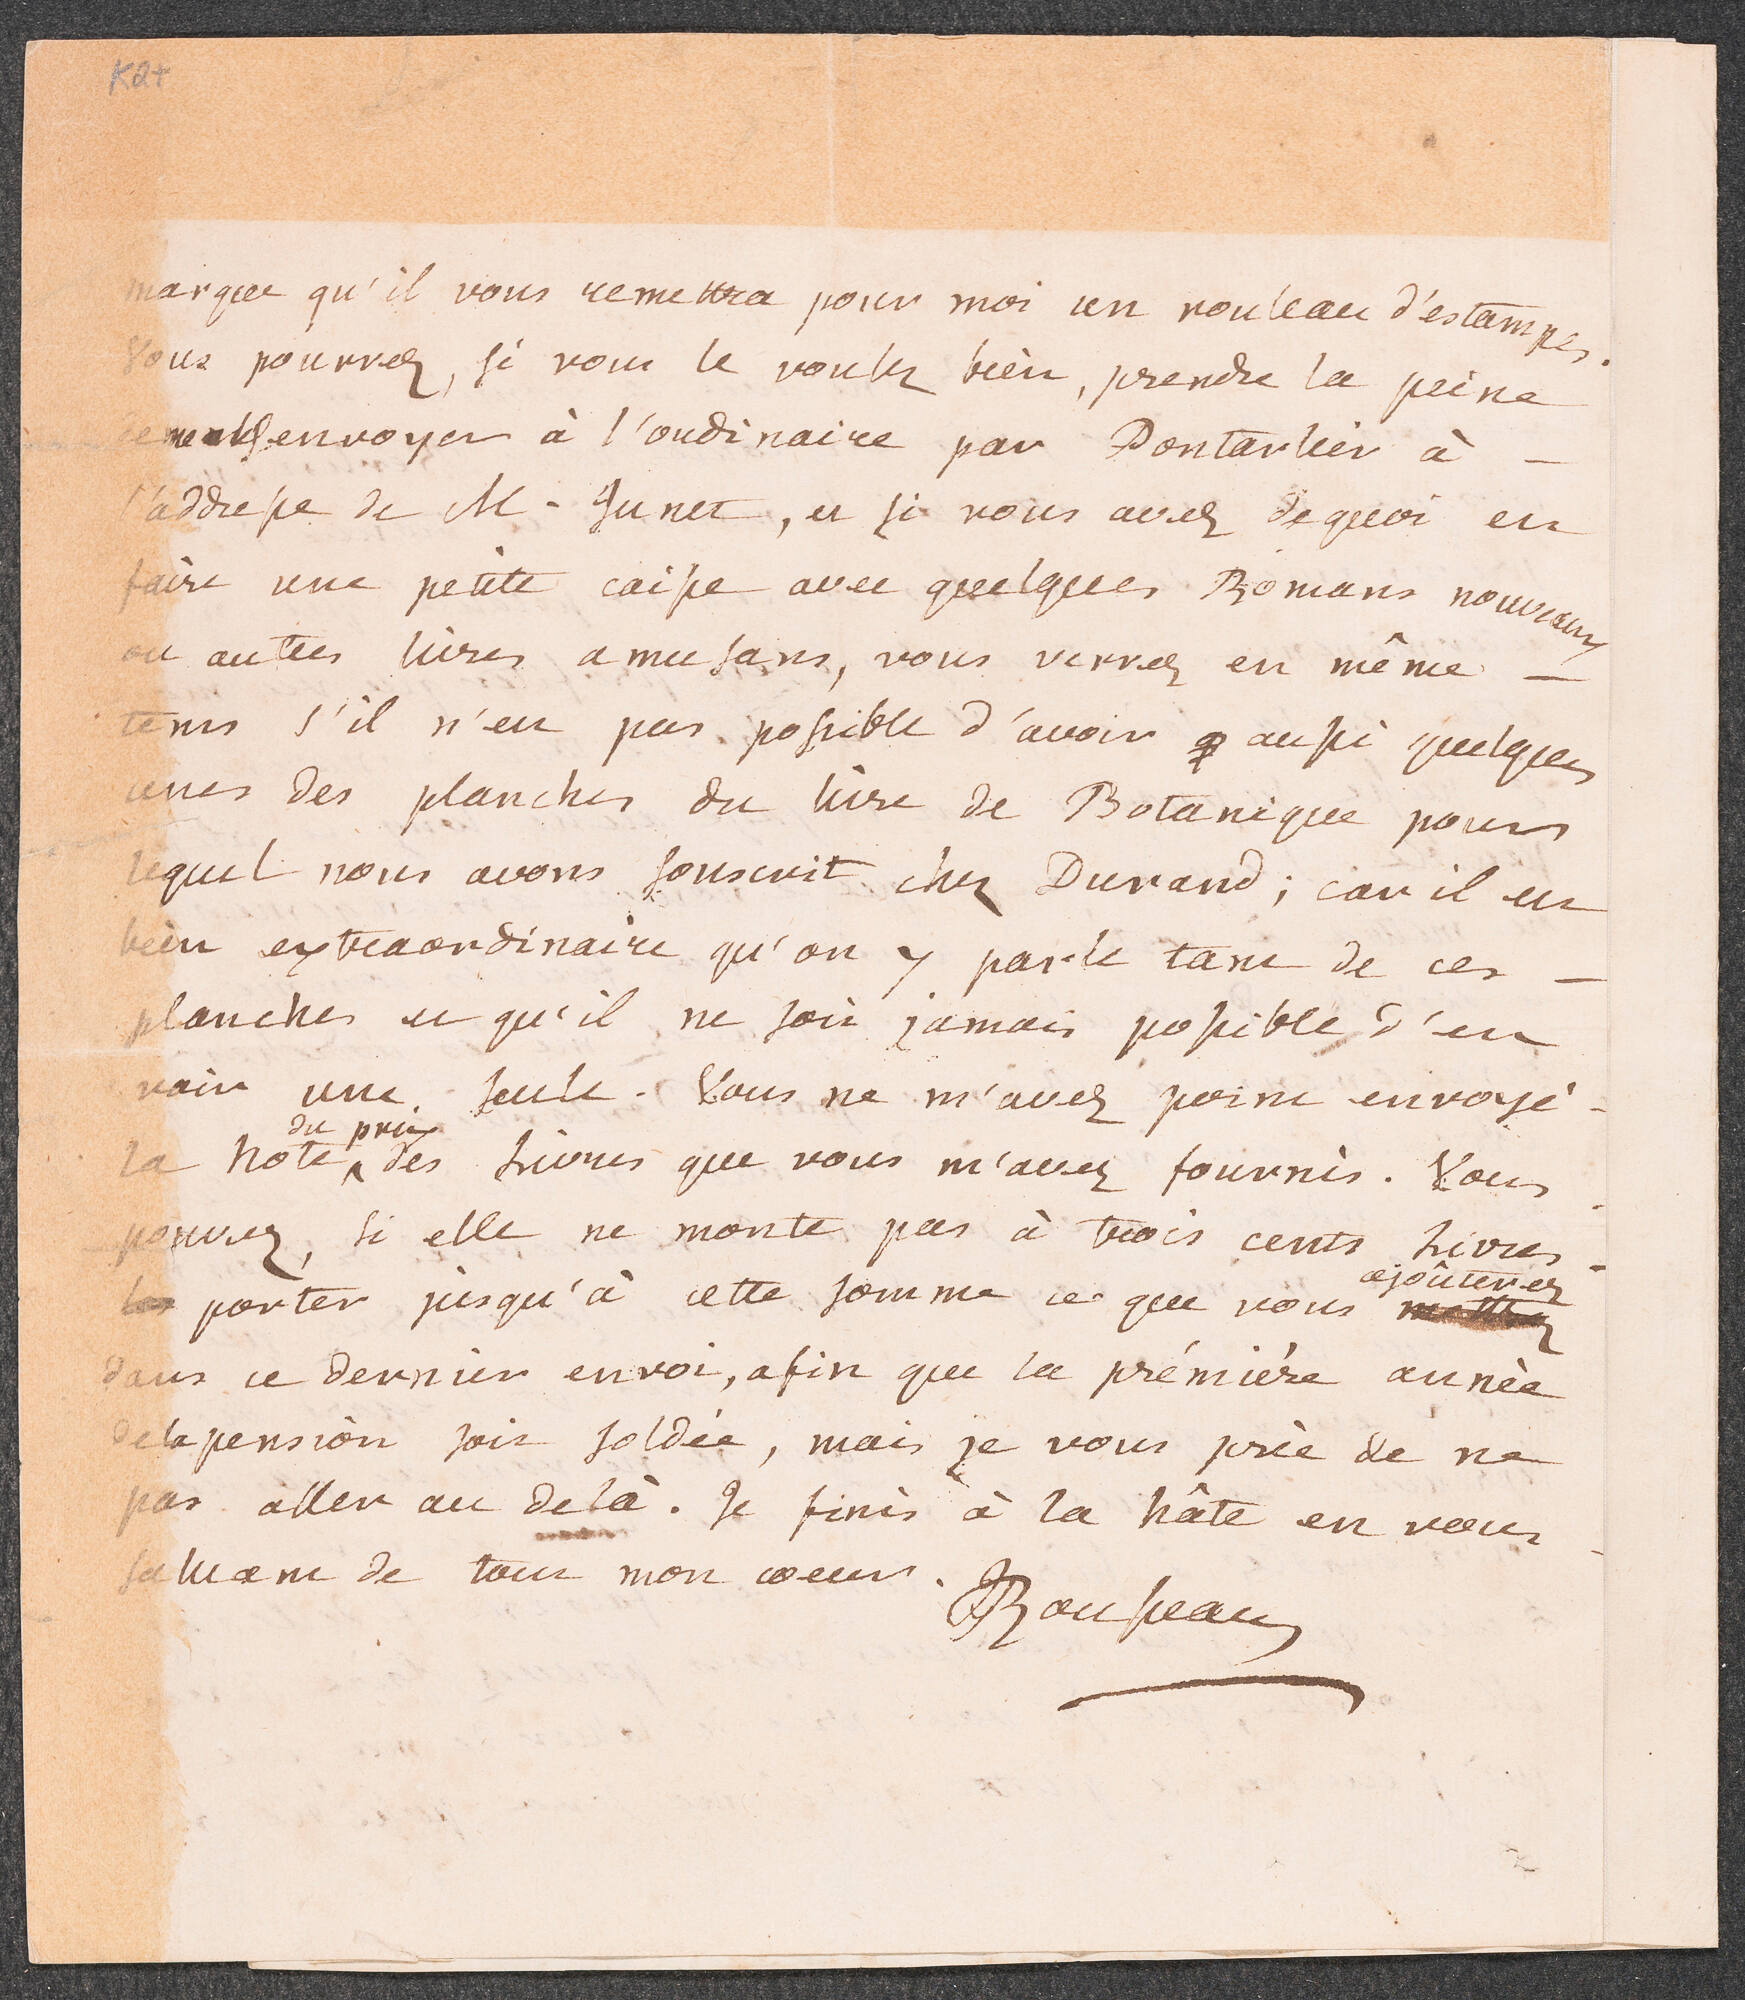 K2+
marque qu'il vous remettra pour moi un rouleau d'estampes.
Vous pourrez, si vous le voulez bien, prendre la peine
de me l'envoyer à l'ordinaire par Pontarlier à —
l'addresse de M. Junet, et si vous avez dequoi en
faire une petite caisse avec quelques Romans nouveaux
ou autres livres amusans, vous verrez en même —
tems s'il n'est pas possible d'avoir aussi quelques
unes des planches du livre de Botanique pour
lequel nous avons souscrit chez Durand; car il est
bien extraordinaire qu'on y parle tant de ces —
planches et qu'il ne soit jamais possible d'en
voir une seule. Vous ne m'avez point envoyé -
du prix
la note des Livres que vous m'avez fournis. Vous
pouvez, si elle ne monte pas à trois cents Livres -
ajoûterez
porter jusqu'à cette somme ce que vous mettrez
dans ce dernier envoi, afin que la prémiére année
de la pension soit soldée, mais je vous prie de ne
pas aller au delà. Je finis à la hâte en vous -
saluant de tout mon coeur.
JJRousseau